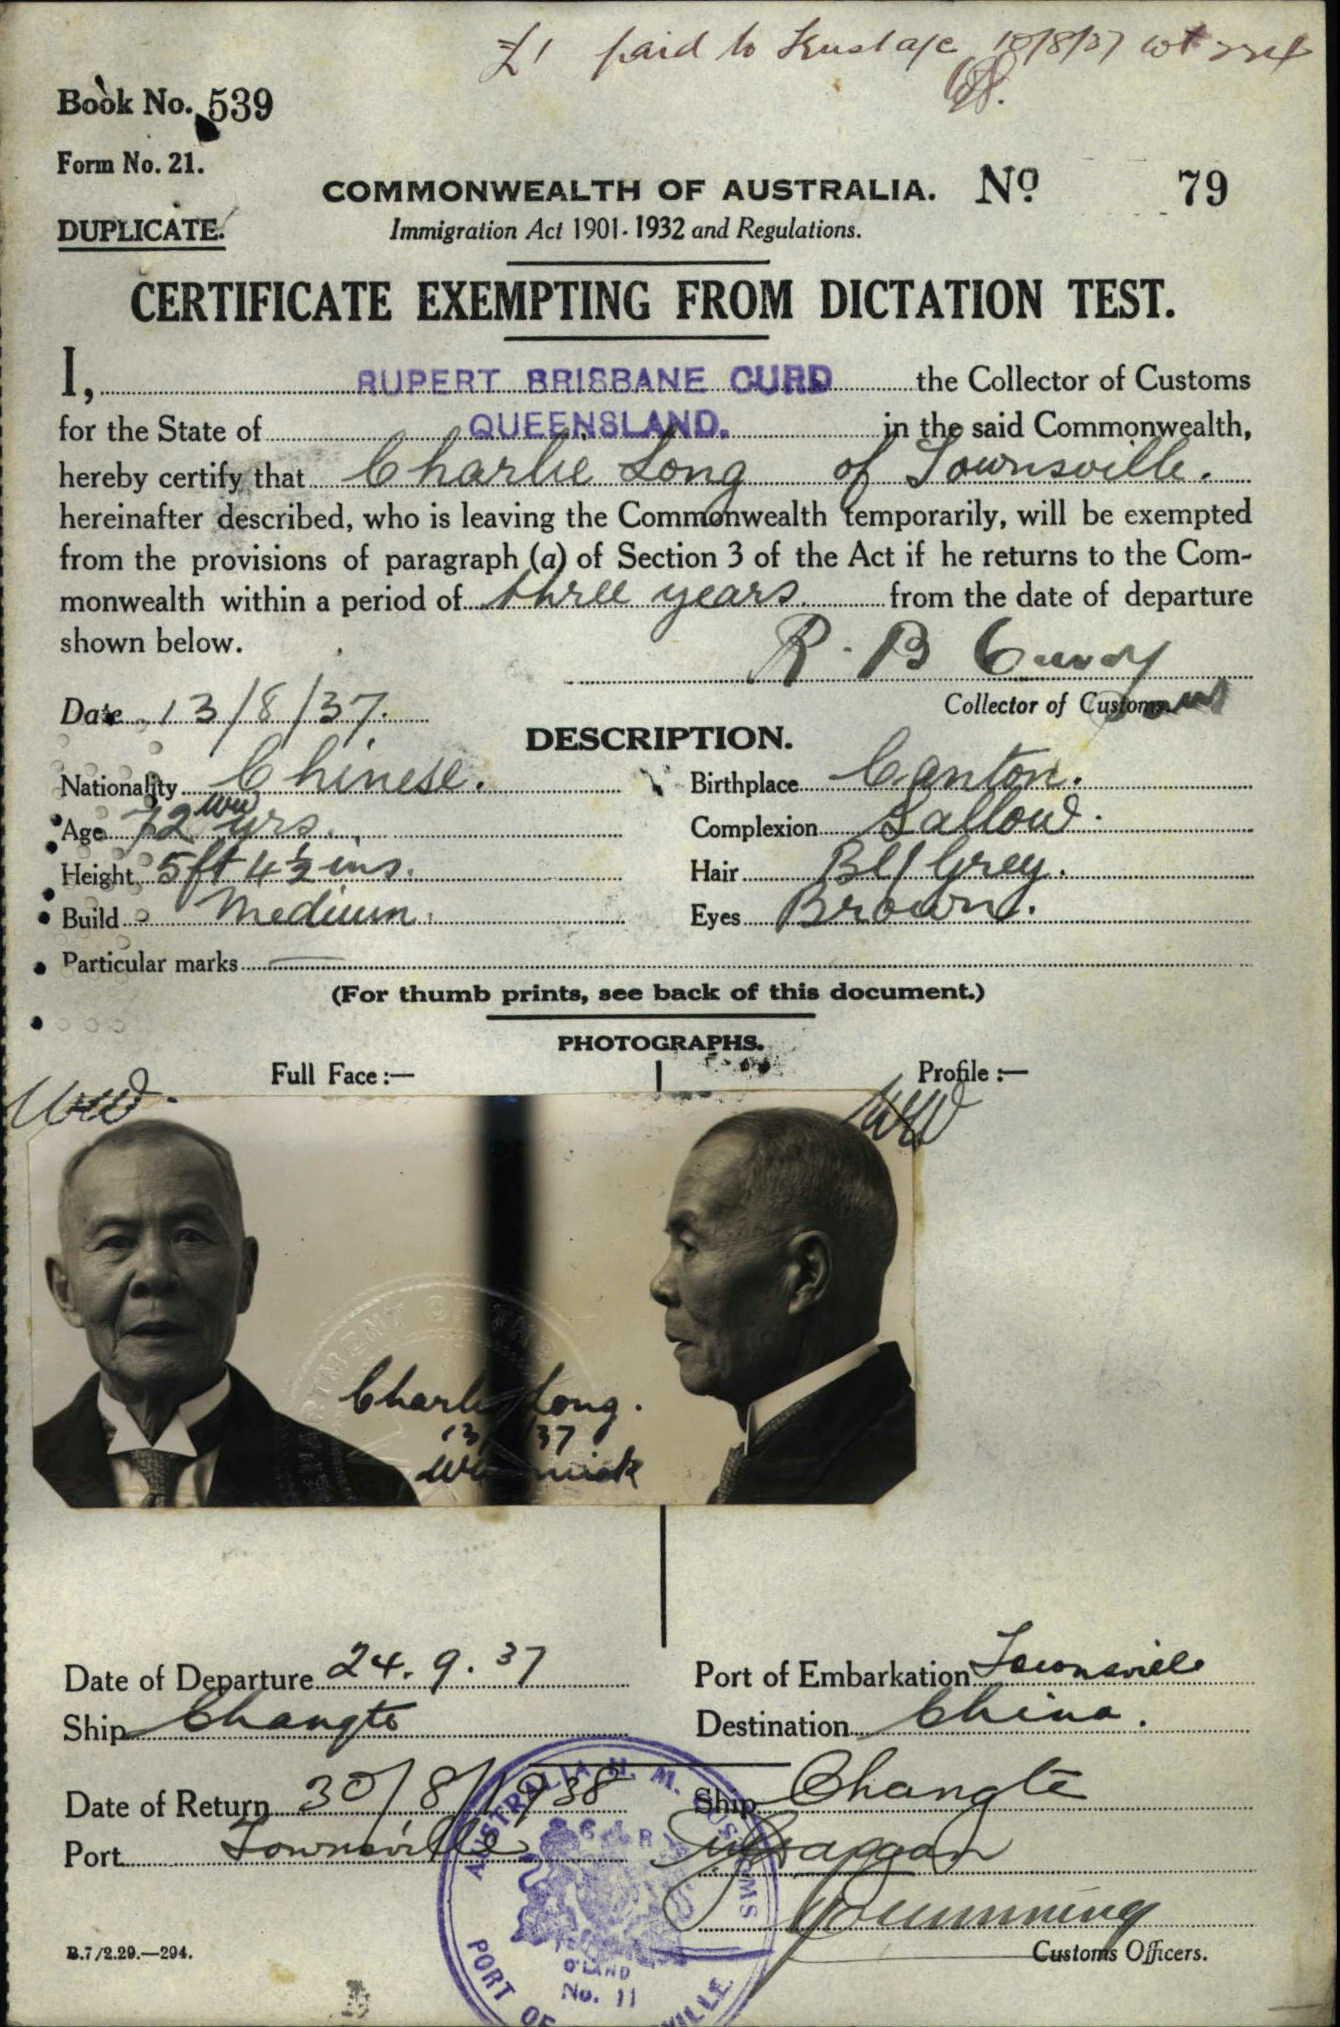 £1 paid to Trust a/c 10/8/37
Book No. 539
Form No. 21.
COMMONWEALTH OF AUSTRALIA. No 79
DUPLICATE.
Immigration Act 1901-1932 and Regulations.
CERTIFICATE EXEMPTING FROM DICTATION TEST.
I, RUPERT BRISBANE CURD the Collector of Customs
for the State of QUEENSLAND. in the said Commonwealth,
hereby certify that Charlie Long of Townsville.
hereinafter described, who is leaving the Commonwealth temporarily, will be exempted
from the provisions of paragraph (a) of Section 3 of the Act if he returns to the Com-
monwealth within a period of three years from the date of departure
shown below.
R. B Curd
Date 13/8/37. Collector of Customs
DESCRIPTION.
Nationality Chinese. Birthplace Canton.
Age 72 yrs. Complexion Sallow.
Height 5ft 4½ ins. Hair Blk/Grey.
Build Medium. Eyes Brown.
Particular marks
(For thumb prints, see back of this document.)
PHOTOGRAPHS.
Full Face:— Profile:—
WW. WW
Charlie Long.
13 37
Date of Departure 24.9.37 Port of Embarkation Townsville
Ship Changte Destination China.
Date of Return 30/8/1938 Ship Changte
Port Townsville
Customs Officers.
B.7/2.29.—294.
AUSTRALIA H. M. CUSTOMS
Q'LAND
No. 11
PORT OF